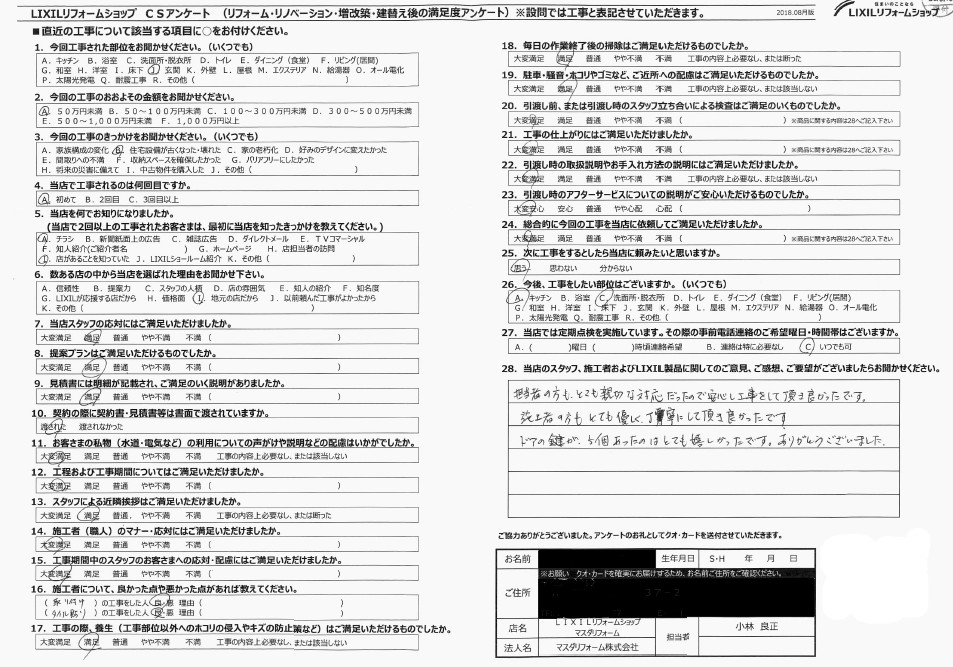 LIXILリフォームショップ CSアンケート (リフォーム・リノベーション・増改築・建替え後の満足度アンケート) ※設問では工事と表記させていただきます。
2018.08月版
LIXILリフォームショップ
■直近の工事について該当する項目に○をお付けください。
1. 今回工事された部位をお聞かせください。(いくつでも)
A. キッチン B. 浴室 C. 洗面所・脱衣所 D. トイレ E. ダイニング(食堂) F. リビング(居間)
G. 和室 H. 洋室 I. 床下 J. 玄関 K. 外壁 L. 屋根 M. エクステリア N. 給湯器 O. オール電化
P. 太陽光発電 Q. 耐震工事 R. その他 ( )
2. 今回の工事のおおよその金額をお聞かせください。
A. 50万円未満 B. 50~100万円未満 C. 100~300万円未満 D. 300~500万円未満
E. 500~1,000万円未満 F. 1,000万円以上
3. 今回の工事のきっかけをお聞かせください。(いくつでも)
A. 家族構成の変化 B. 住宅設備が古くなった・壊れた C. 家の老朽化 D. 好みのデザインに変えたかった
E. 間取りへの不満 F. 収納スペースを確保したかった G. バリアフリーにしたかった
H. 将来の災害に備えて I. 中古物件を購入した J. その他 ( )
4. 当店で工事されるのは何回目ですか。
A. 初めて B. 2回目 C. 3回目以上
5. 当店を何でお知りになりましたか。
(当店で2回以上の工事されたお客さまは、最初に当店を知ったきっかけを教えてください。)
A. チラシ B. 新聞紙面上の広告 C. 雑誌広告 D. ダイレクトメール E. TVコマーシャル
F. 知人紹介(ご紹介者名 ) G. ホームページ H. 店担当者の訪問
I. 店があることを知っていた J. LIXILショールーム紹介 K. その他 ( )
6. 数ある店の中から当店を選ばれた理由をお聞かせ下さい。
A. 信頼性 B. 提案力 C. スタッフの人柄 D. 店の雰囲気 E. 知人の紹介 F. 知名度
G. LIXILが応援する店だから H. 価格面 I. 地元の店だから J. 以前頼んだ工事がよかったから
K. その他 ( )
7. 当店スタッフの応対にはご満足いただけましたか。
大変満足 満足 普通 やや不満 不満 ( )
8. 提案プランはご満足いただけるものでしたか。
大変満足 満足 普通 やや不満 不満 ( )
9. 見積書には明細が記載され、ご満足のいく説明がありましたか。
大変満足 満足 普通 やや不満 不満 ( )
10. 契約の際に契約書・見積書等は書面で渡されていますか。
渡された 渡されなかった
11. お客さまの私物(水道・電気など)の利用についての声がけや説明などの配慮はいかがでしたか。
大変満足 満足 普通 やや不満 不満 工事の内容上必要なし、または該当しない
12. 工程および工事期間についてはご満足いただけましたか。
大変満足 満足 普通 やや不満 不満 ( )
13. スタッフによる近隣挨拶はご満足いただけましたか。
大変満足 満足 普通 やや不満 不満 工事の内容上必要なし、または断った
14. 施工者(職人)のマナー・応対にはご満足いただけましたか。
大変満足 満足 普通 やや不満 不満 ( )
15. 工事期間中のスタッフのお客さまへの応対・配慮にはご満足いただけましたか。
大変満足 満足 普通 やや不満 不満 ( )
16. 施工者について、良かった点や悪かった点があれば教えてください。
( 取り付け ) の工事をした人 良・悪 理由 ( )
( タイル貼り ) の工事をした人 良・悪 理由 ( )
17. 工事の際、養生(工事部位以外へのホコリの侵入やキズの防止策など)はご満足いただけるものでしたか。
大変満足 満足 普通 やや不満 不満 工事の内容上必要なし、または該当しない
18. 毎日の作業終了後の掃除はご満足いただけるものでしたか。
大変満足 満足 普通 やや不満 不満 工事の内容上必要なし、または断った
19. 駐車・騒音・ホコリやゴミなど、ご近所への配慮はご満足いただけるものでしたか。
大変満足 満足 普通 やや不満 不満 ( )
20. 引渡し前、または引渡し時のスタッフ立ち合いによる検査はご満足のいくものでしたか。
大変満足 満足 普通 やや不満 不満 ( ) ※商品に関する内容は28へご記入下さい
21. 工事の仕上がりにはご満足いただけましたか。
大変満足 満足 普通 やや不満 不満 ( ) ※商品に関する内容は28へご記入下さい
22. 引渡し時の取扱説明やお手入れ方法の説明にはご満足いただけましたか。
大変満足 満足 普通 やや不満 不満 工事の内容上必要なし、または該当しない
23. 引渡し時のアフターサービスについての説明がご安心いただけるものでしたか。
大変安心 安心 普通 やや心配 心配 ( )
24. 総合的に今回の工事を当店に依頼してご満足いただけましたか。
大変満足 満足 普通 やや不満 不満 ( ) ※商品に関する内容は28へご記入下さい
25. 次に工事をするとしたら当店に頼みたいと思いますか。
思う 思わない 分からない
26. 今後、工事をしたい部位はございますか。(いくつでも)
A. キッチン B. 浴室 C. 洗面所・脱衣所 D. トイレ E. ダイニング(食堂) F. リビング(居間)
G. 和室 H. 洋室 I. 床下 J. 玄関 K. 外壁 L. 屋根 M. エクステリア N. 給湯器 O. オール電化
P. 太陽光発電 Q. 耐震工事 R. その他 ( )
27. 当店では定期点検を実施しています。その際の事前電話連絡のご希望曜日・時間帯はございますか。
A. ( )曜日 ( )時頃連絡希望 B. 連絡は特に必要なし C. いつでも可
28. 当店のスタッフ、施工者およびLIXIL製品に関してのご意見、ご感想、ご要望がございましたらお聞かせください。
担当者の方も、とても親切な対応だったので安心し工事をして頂き良かったです。
施工者の方も とても優しく、丁寧にして頂き良かったです
ドアの鍵が、5個あったのはとても嬉しかったです。ありがとうございました。
ご協力ありがとうございました。アンケートのお礼としてクオ・カードを送付させていただきます。
お名前 生年月日 S・H 年 月 日
※お願い クオ・カードを確実にお届けするため、お名前ご住所をご確認ください。
ご住所 37-2
店名 LIXILリフォームショップ マスダリフォーム 担当者 小林 良正
法人名 マスダリフォーム株式会社